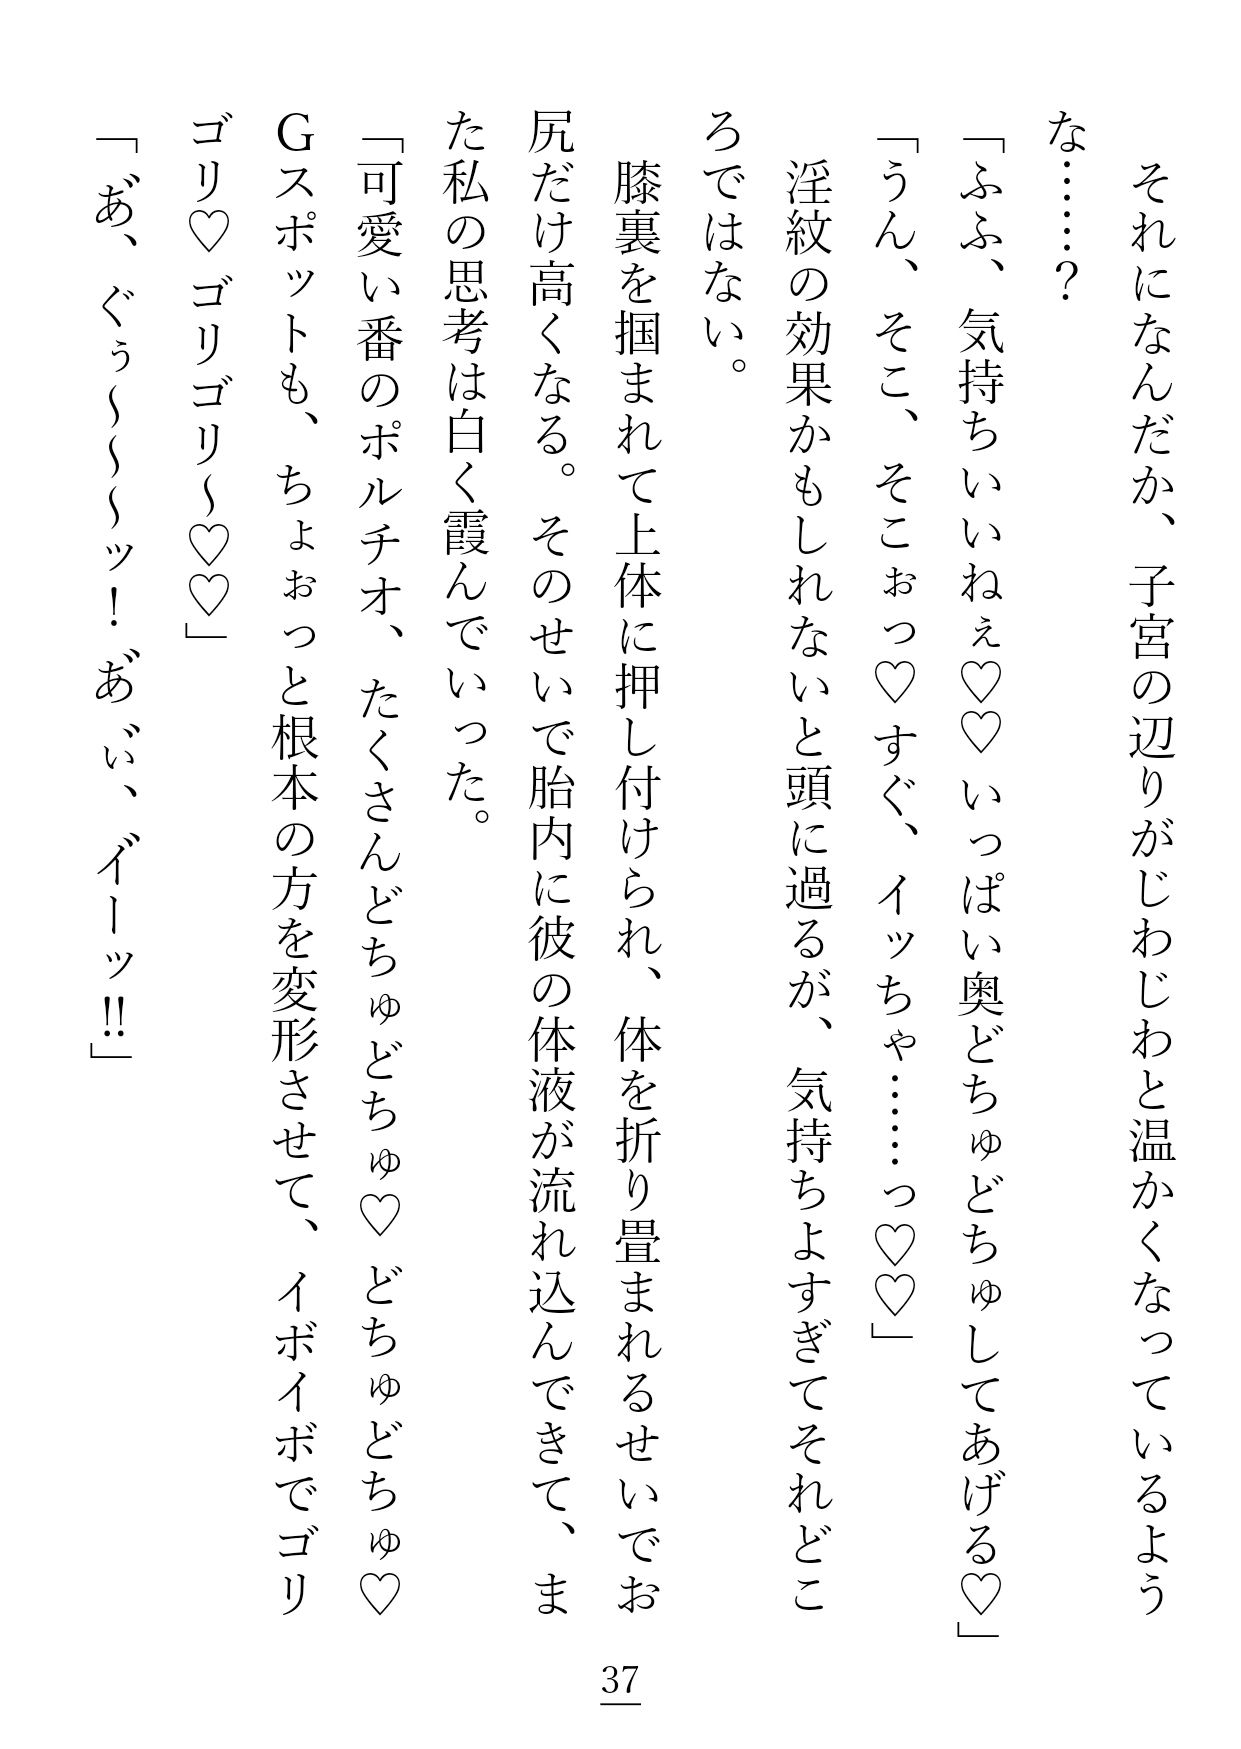 それになんだか、子宮の辺りがじわじわと温かくなっているよう
な……？
「ふふ、気持ちいいねぇ♡♡いっぱい奥どちゅどちゅしてあげる♡」
「うん、そこ、そこぉっ♡すぐ、イッちゃ……っ♡♡」
淫紋の効果かもしれないと頭に過るが、気持ちよすぎてそれどこ
ろではない。
膝裏を掴まれて上体に押し付けられ、体を折り畳まれるせいでお
尻だけ高くなる。そのせいで胎内に彼の体液が流れ込んできて、ま
た私の思考は白く霞んでいった。
「可愛い番のポルチオ、たくさんどちゅどちゅ♡どちゅどちゅ♡
Gスポットも、ちょぉっと根本の方を変形させて、イボイボでゴリ
ゴリ♡ゴリゴリ〜♡♡」
「あ゛、ぐぅ〜〜〜ッ！あ゛ぃ゛、イ゛ーッ‼」
37